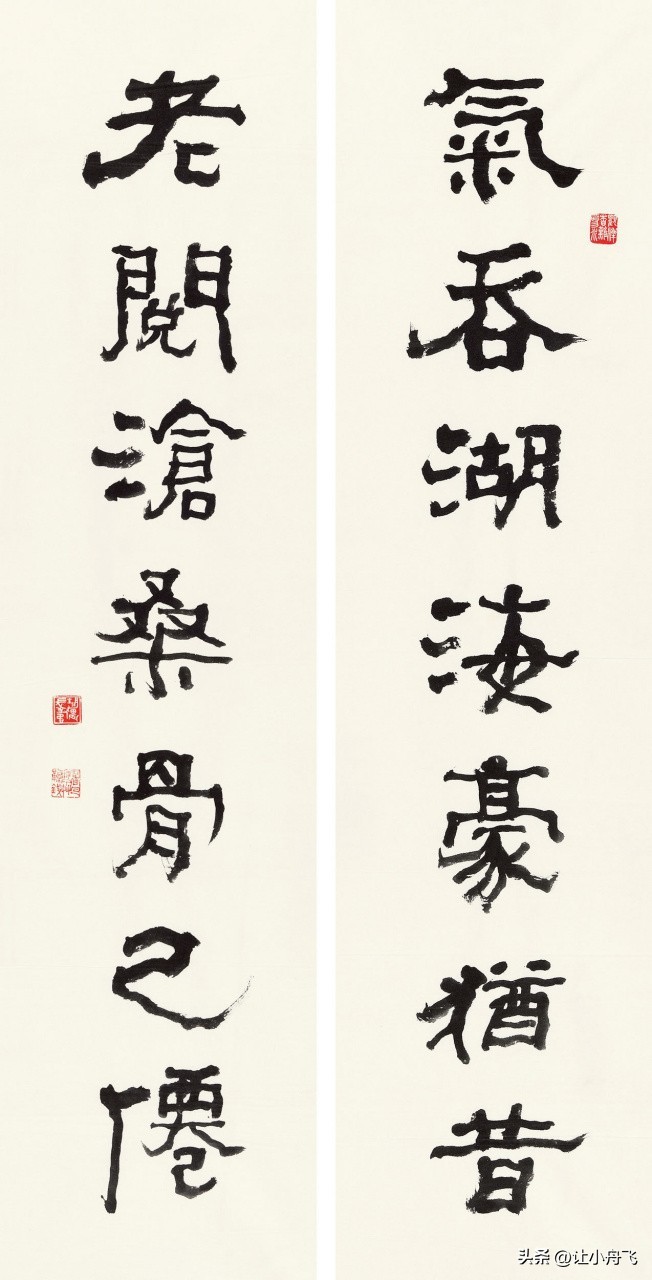 氣吞湖海豪猶昔
老閱滄桑骨已僊
头条 @让小舟飞